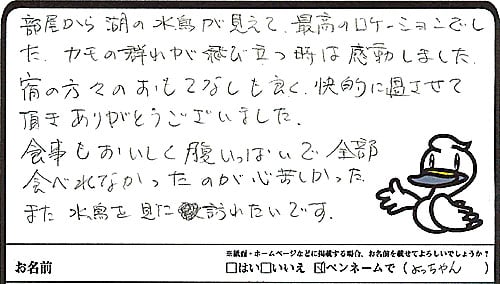 部屋から湖の水鳥が見えて、最高のロケーションでし
た。カモの群れが飛び立つ時は感動しました。
宿の方々のおもてなしも良く、快的に過させて
頂きありがとうございました。
食事もおいしく腹いっぱいで全部
食べれなかったのが心苦しかった
また水鳥を見に訪れたいです。
※紙面・ホームページなどに掲載する場合、お名前を載せてよろしいでしょうか？
お名前 □はい□いいえ ☑ペンネームで（よっちゃん ）